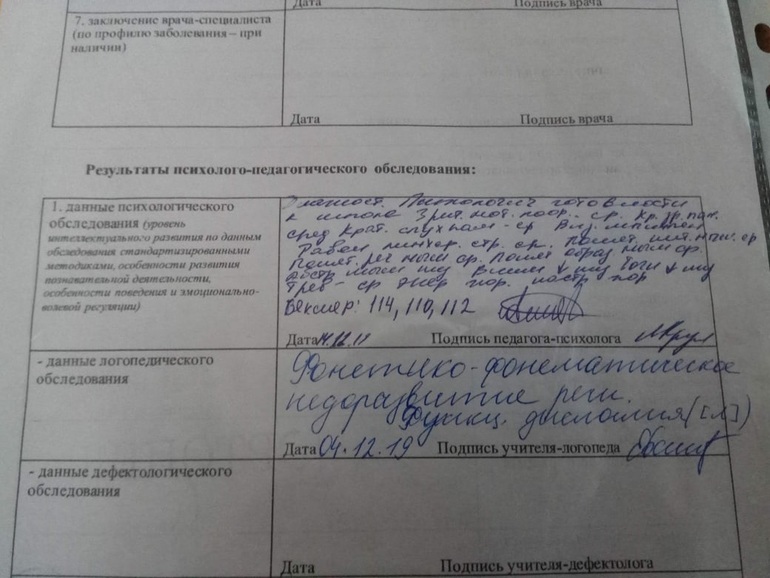 Дата Подпись врача
7. заключение врача-специалиста
(по профилю заболевания – при
наличии)
Дата Подпись врача
Результаты психолого-педагогического обследования:
1. данные психологического
обследования (уровень
интеллектуального развития по данным
обследования стандартизированными
методиками, особенности развития
познавательной деятельности,
особенности поведения и эмоционально-
волевой регуляции)
готовности
к школе Зрит. мот. коор. ср. Кр. зр. пам.
сред Крат. слух пам - ср
ср. Понят
Понят. реч мыш ср. Понят образ мыш ср.
Трев - ср
Векслер: 114, 110, 112
Дата Подпись педагога-психолога
- данные логопедического
обследования
Фонетико-фонематическое
недоразвитие речи.
Функц. дислалия ([л])
Дата 04.12.19 Подпись учителя-логопеда
- данные дефектологического
обследования
Дата Подпись учителя-дефектолога